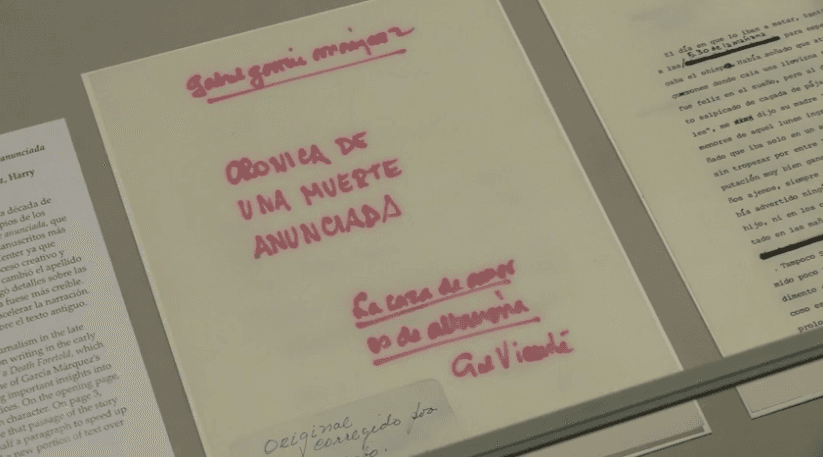 anunciada
z, Harry
z década de
pios de los
e anunciada, que
anuscritos más
enter ya que
ceso creativo y
cambió el apellido
gó detalles sobre las
a fuese más creíble.
acelerar la narración.
bre el texto antiguo.
urnalism in the late
on writing in the early
f a Death Foretold, which
ne of García Márquez's
ng important insights into
ices. On the opening page,
n character. On page 5,
e that passage of the story
half a paragraph to speed up
a new portion of text over
gabriel garcia marquez
CRONICA DE
UNA MUERTE
ANUNCIADA
La caza de amor
es de altanería
Gil Vicente
Original
corregido
El día en que lo iban a matar, Santi
a las 5.30 de la mañana para espe
caba el obispo. Había soñado que at
donde caía una llovizna
fue feliz en el sueño, pero al
to salpicado de cagada de pája
les", me dijo su madre
menores de aquel lunes ingr
ñado que iba solo en un a
sin tropezar por entre
putación muy bien gana
ños ajenos, siempre
bía advertido ningú
hijo, ni en los
tado en las mañ
. Tampoco
mido poco
dimento
como es
prolo